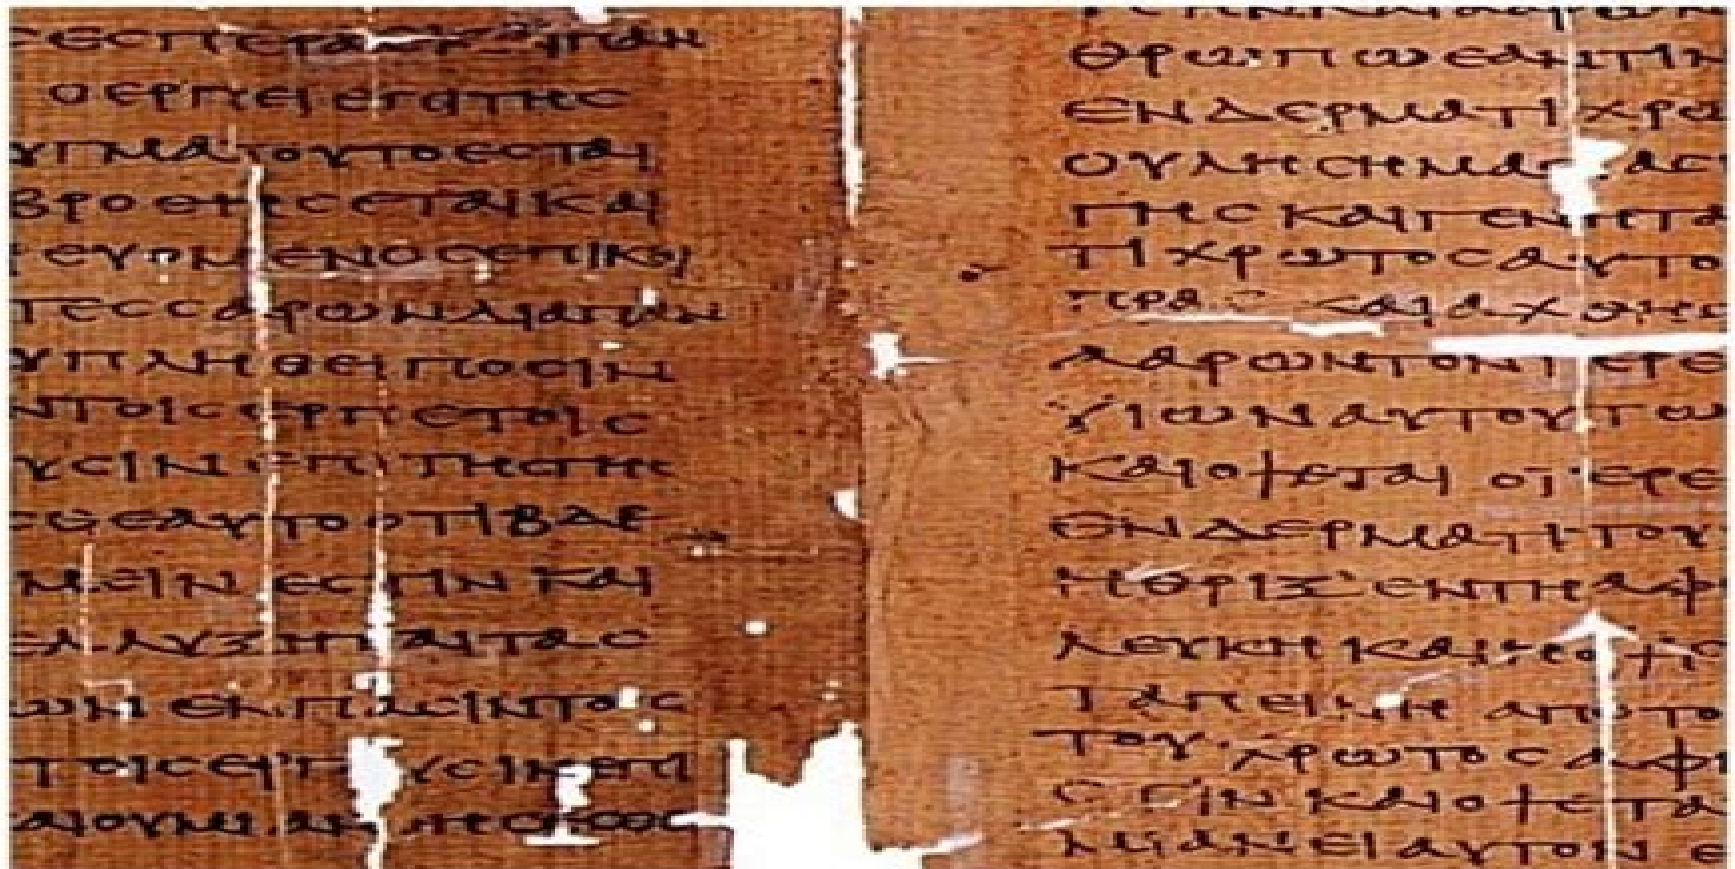 ϹΕϹΠΕΡΑϹΚΑΙΠΑΝ
ΟΕΡΠΕΙΕΠΙΤΗϹ
ΥΓΜΑΤΟΥΤΟΕϹΤΑΙ
ΒΡΟΘΗϹΕΤΑΙΚΑΙ
ΕΥΟΜΕΝΟϹΕΠΙΚΟΙ
ΤΕϹϹΑΡΩΝΔΙΑΠΑΝ
ΥΠΛΗΘΕΙΠΟϹΙΝ
ΝΤΟΙϹΕΡΠΕΤΟΙϹ
ΥϹΙΝΕΠΙΤΗϹΓΗϹ
ϹΘΕΑΥΤΟΟΤΙΒΔΕ
ΜΕΙΝΕϹΤΙΝΚΑΙ
ΕΛΥΞΗΤΑΙΤΑϹ
ΩΝΕΝΠΑϹΙΝΤΟΙϹ
ΤΟΙϹΕΡΠΟΥϹΙΝΕΠΙ
ΘΡΩΠΩΕΑΝΤΙΝ
ΕΝΔΕΡΜΑΤΙΧΡΩ
ΟΥΛΗϹΗΜΑϹΙΑϹ
ΠΗϹΚΑΙΓΕΝΗΤΑ
ΤΙΧΡΩΤΟϹΑΥΤΟ
ΠΡΑϹΚΑΙΑΧΘΗϹ
ΑΑΡΩΝΤΟΝΙΕΡΕ
ΥΙΩΝΑΥΤΟΥΤΩ
ΚΑΙΟΨΕΤΑΙΟΙΕΡΕ
ΕΝΔΕΡΜΑΤΙΤΟΥ
ΗΘΡΙΞΕΝΤΗΑΦ
ΛΕΥΚΗΚΑΙΗΟΨΙϹ
ΤΑΠΕΙΝΗΑΠΟΤΟ
ΤΟΥΧΡΩΤΟϹΑΦ
ϹΤΙΝΚΑΙΟΨΕΤΑ
ΜΙΑΝΕΙΑΥΤΟΝΕ